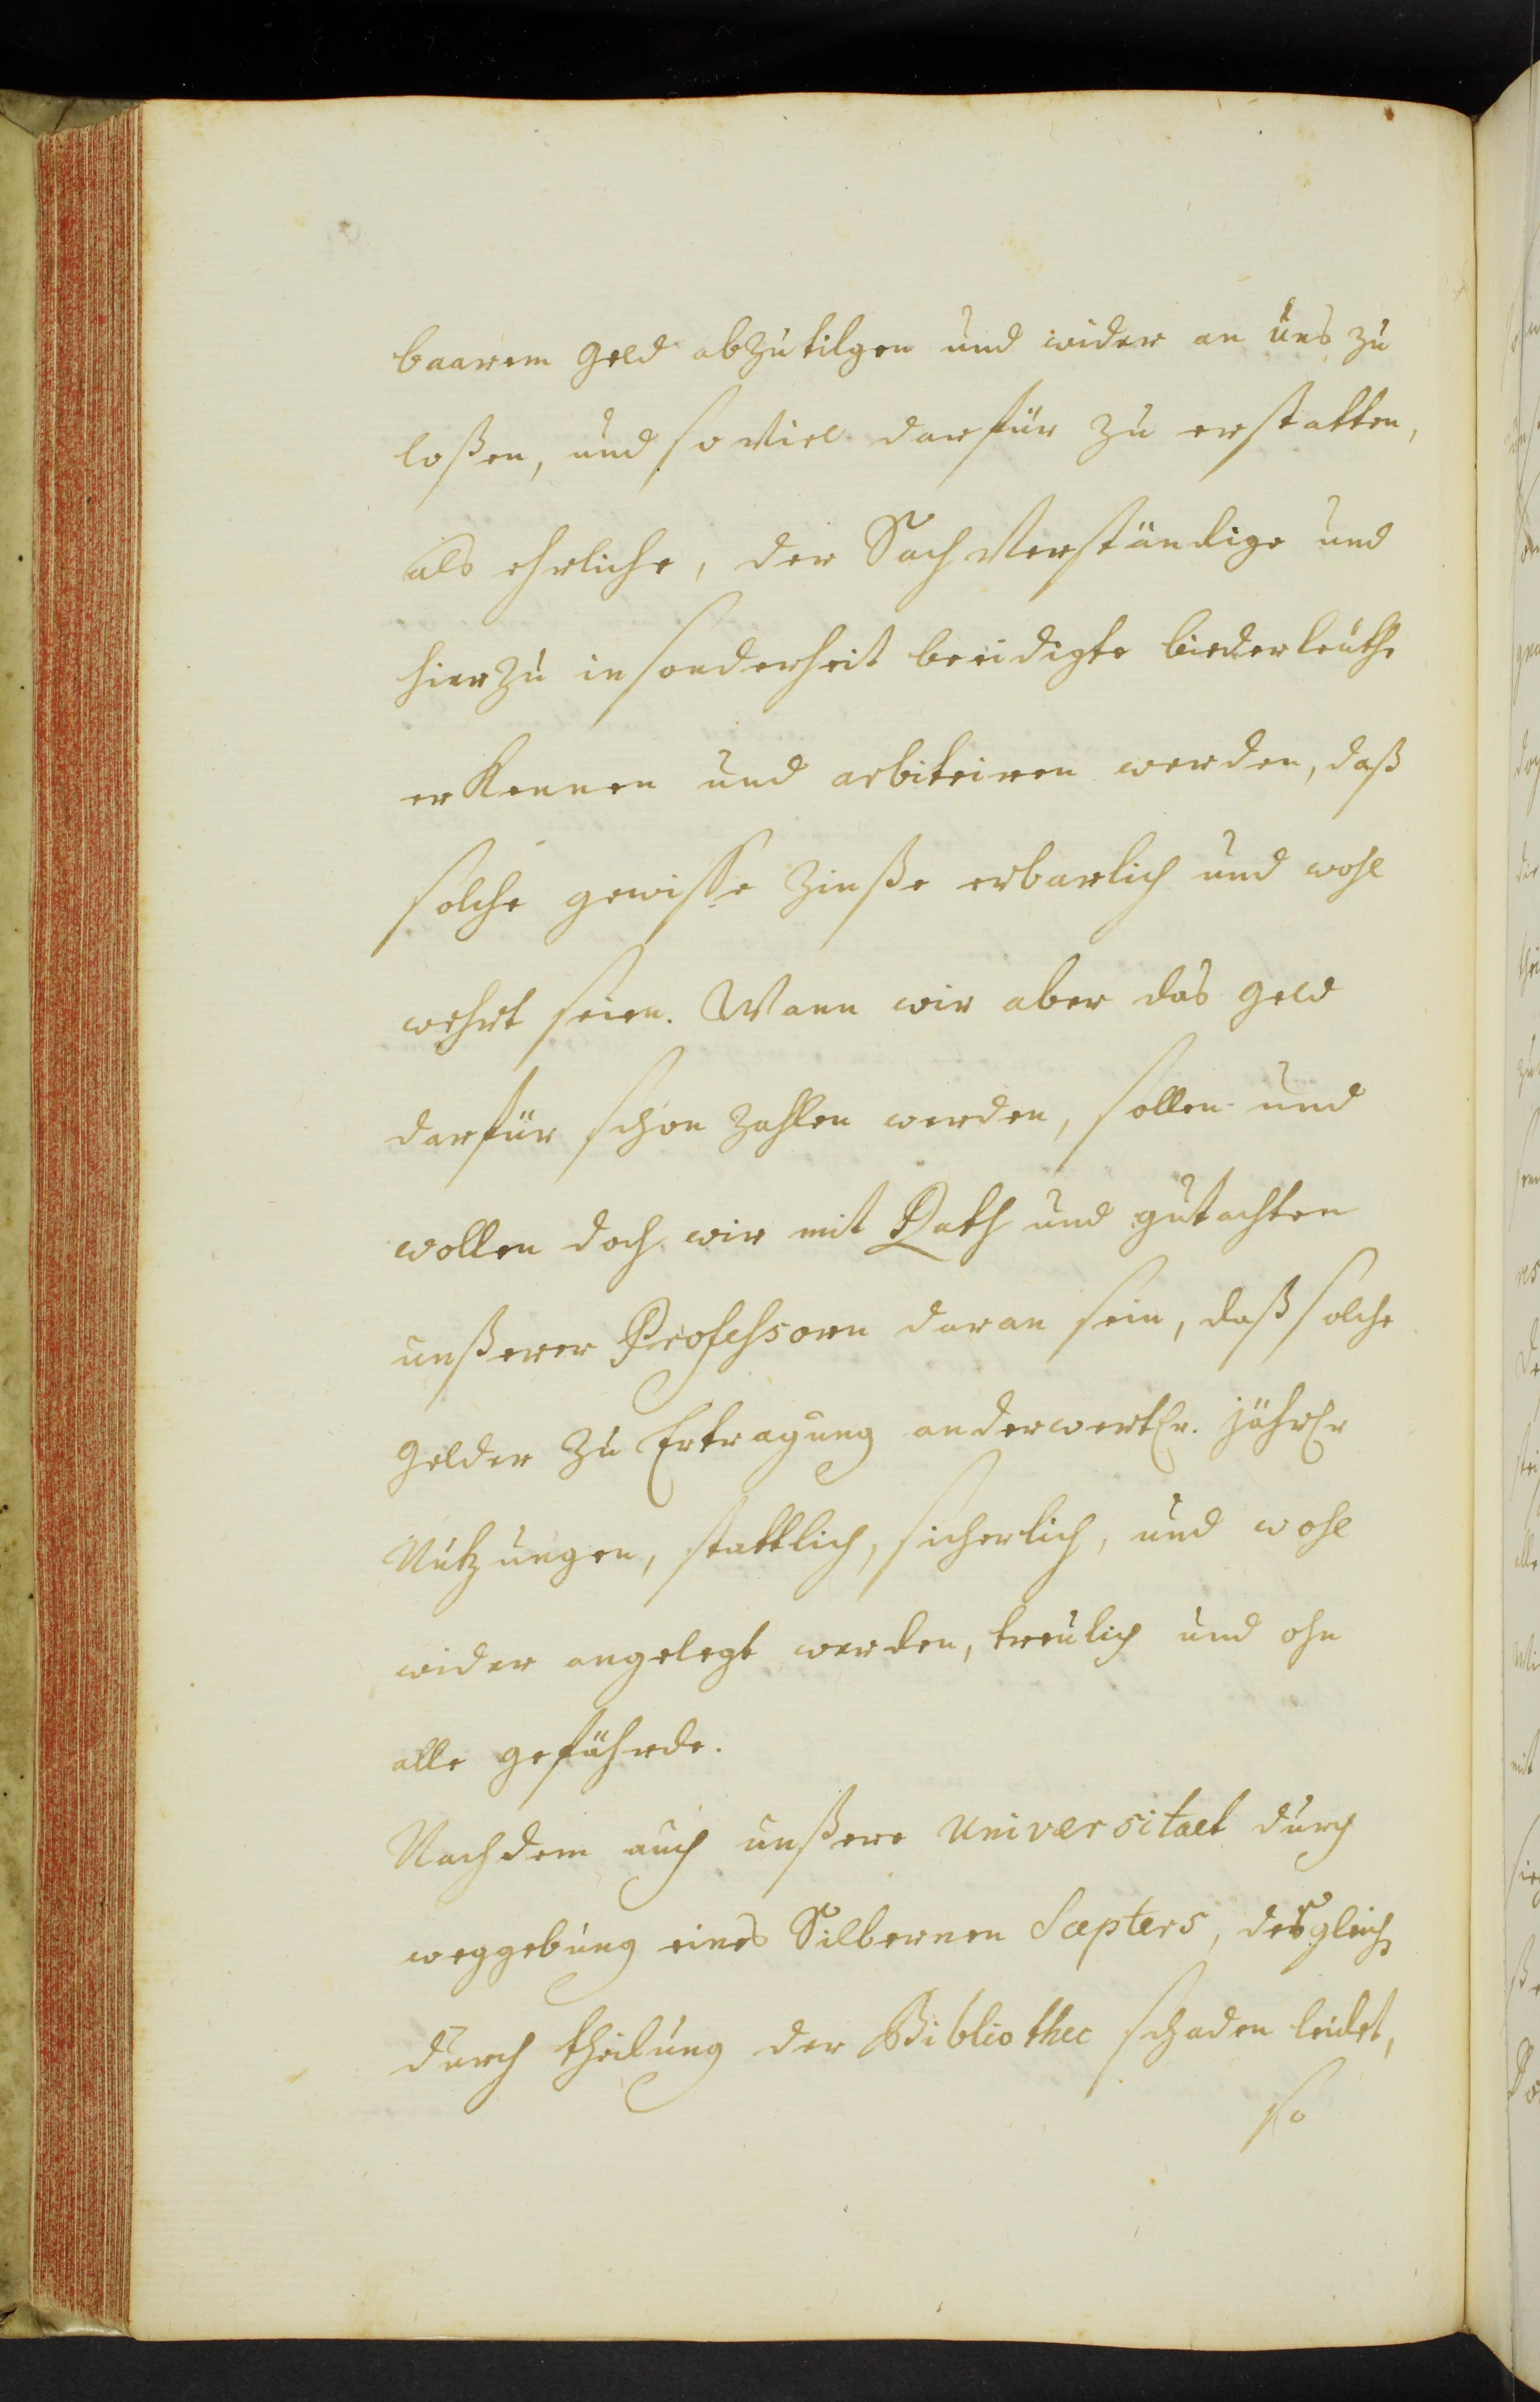 baarem geld abzutilgen und wider an uns zu
loßen, und so viel darfür zu erstatten,
als ehrliche, der Sach Verständige und
hierzu insonderheit beeidigte biederleuthe
erkennen und arbitriren werden, daß
solche gewisse Zinße erbarlich und wohl
wehrt seien. Wann wir aber das geld
darfür schon zahlen werden, sollen und
wollen doch wir mit Rath und gutachten
unßerer Professorn daran sein, daß solche
gelder zu Ertragung anderwertl. jährl.
Nutzungen, stattlich, sicherlich, und wohl
wider angelegt werden, treulich und ohn
alle gefährde.
Nachdem auch unßere Universitaet durch
weggebung eines Silbernen Scepters, desgleich
durch theilung der Bibliothec schaden leidet,
so